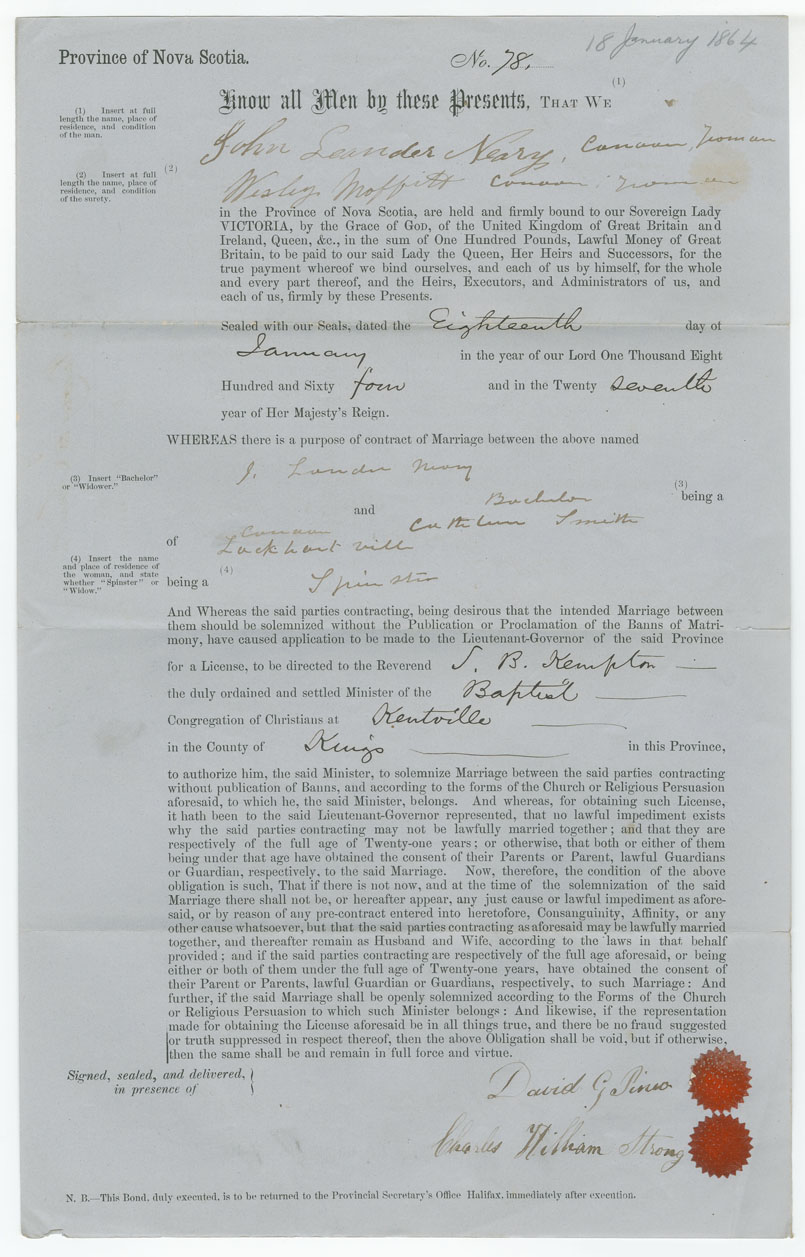 18 January 1864
Province of Nova Scotia.
No. 78,
(1)
Know all Men by these Presents, THAT WE
(1) Insert at full
length the name, place of
residence, and condition
of the man.
John Leander Neary, Yeoman
(2) Insert at full
length the name, place of
residence, and condition
of the surety.
(2)
Wesley Moffitt
in the Province of Nova Scotia, are held and firmly bound to our Sovereign Lady
VICTORIA, by the Grace of GOD, of the United Kingdom of Great Britain and
Ireland, Queen, &c., in the sum of One Hundred Pounds, Lawful Money of Great
Britain, to be paid to our said Lady the Queen, Her Heirs and Successors, for the
true payment whereof we bind ourselves, and each of us by himself, for the whole
and every part thereof, and the Heirs, Executors, and Administrators of us, and
each of us, firmly by these Presents.
Sealed with our Seals, dated the Eighteenth day of
January in the year of our Lord One Thousand Eight
Hundred and Sixty four and in the Twenty seventh
year of Her Majesty's Reign.
WHEREAS there is a purpose of contract of Marriage between the above named
J.
(3) Insert "Bachelor"
or "Widower."
(3)
Bachelor being a
and Smith
of
Lockhartville
(4) Insert the name
and place of residence of
the woman, and state
whether "Spinster" or
"Widow."
(4)
being a Spinster
And Whereas the said parties contracting, being desirous that the intended Marriage between
them should be solemnized without the Publication or Proclamation of the Banns of Matri-
mony, have caused application to be made to the Lieutenant-Governor of the said Province
for a License, to be directed to the Reverend S. B. Kempton
the duly ordained and settled Minister of the Baptist
Congregation of Christians at Kentville
in the County of Kings in this Province,
to authorize him, the said Minister, to solemnize Marriage between the said parties contracting
without publication of Banns, and according to the forms of the Church or Religious Persuasion
aforesaid, to which he, the said Minister, belongs. And whereas, for obtaining such License,
it hath been to the said Lieutenant-Governor represented, that no lawful impediment exists
why the said parties contracting may not be lawfully married together; and that they are
respectively of the full age of Twenty-one years; or otherwise, that both or either of them
being under that age have obtained the consent of their Parents or Parent, lawful Guardians
or Guardian, respectively, to the said Marriage. Now, therefore, the condition of the above
obligation is such, That if there is not now, and at the time of the solemnization of the said
Marriage there shall not be, or hereafter appear, any just cause or lawful impediment as afore-
said, or by reason of any pre-contract entered into heretofore, Consanguinity, Affinity, or any
other cause whatsoever, but that the said parties contracting as aforesaid may be lawfully married
together, and thereafter remain as Husband and Wife, according to the laws in that behalf
provided; and if the said parties contracting are respectively of the full age aforesaid, or being
either or both of them under the full age of Twenty-one years, have obtained the consent of
their Parent or Parents, lawful Guardian or Guardians, respectively, to such Marriage: And
further, if the said Marriage shall be openly solemnized according to the Forms of the Church
or Religious Persuasion to which such Minister belongs: And likewise, if the representation
made for obtaining the License aforesaid be in all things true, and there be no fraud suggested
or truth suppressed in respect thereof, then the above Obligation shall be void, but if otherwise,
then the same shall be and remain in full force and virtue.
Signed, sealed, and delivered,
in presence of
David G Pineo
Charles William Strong
N. B.—This Bond, duly executed, is to be returned to the Provincial Secretary's Office Halifax, immediately after execution.